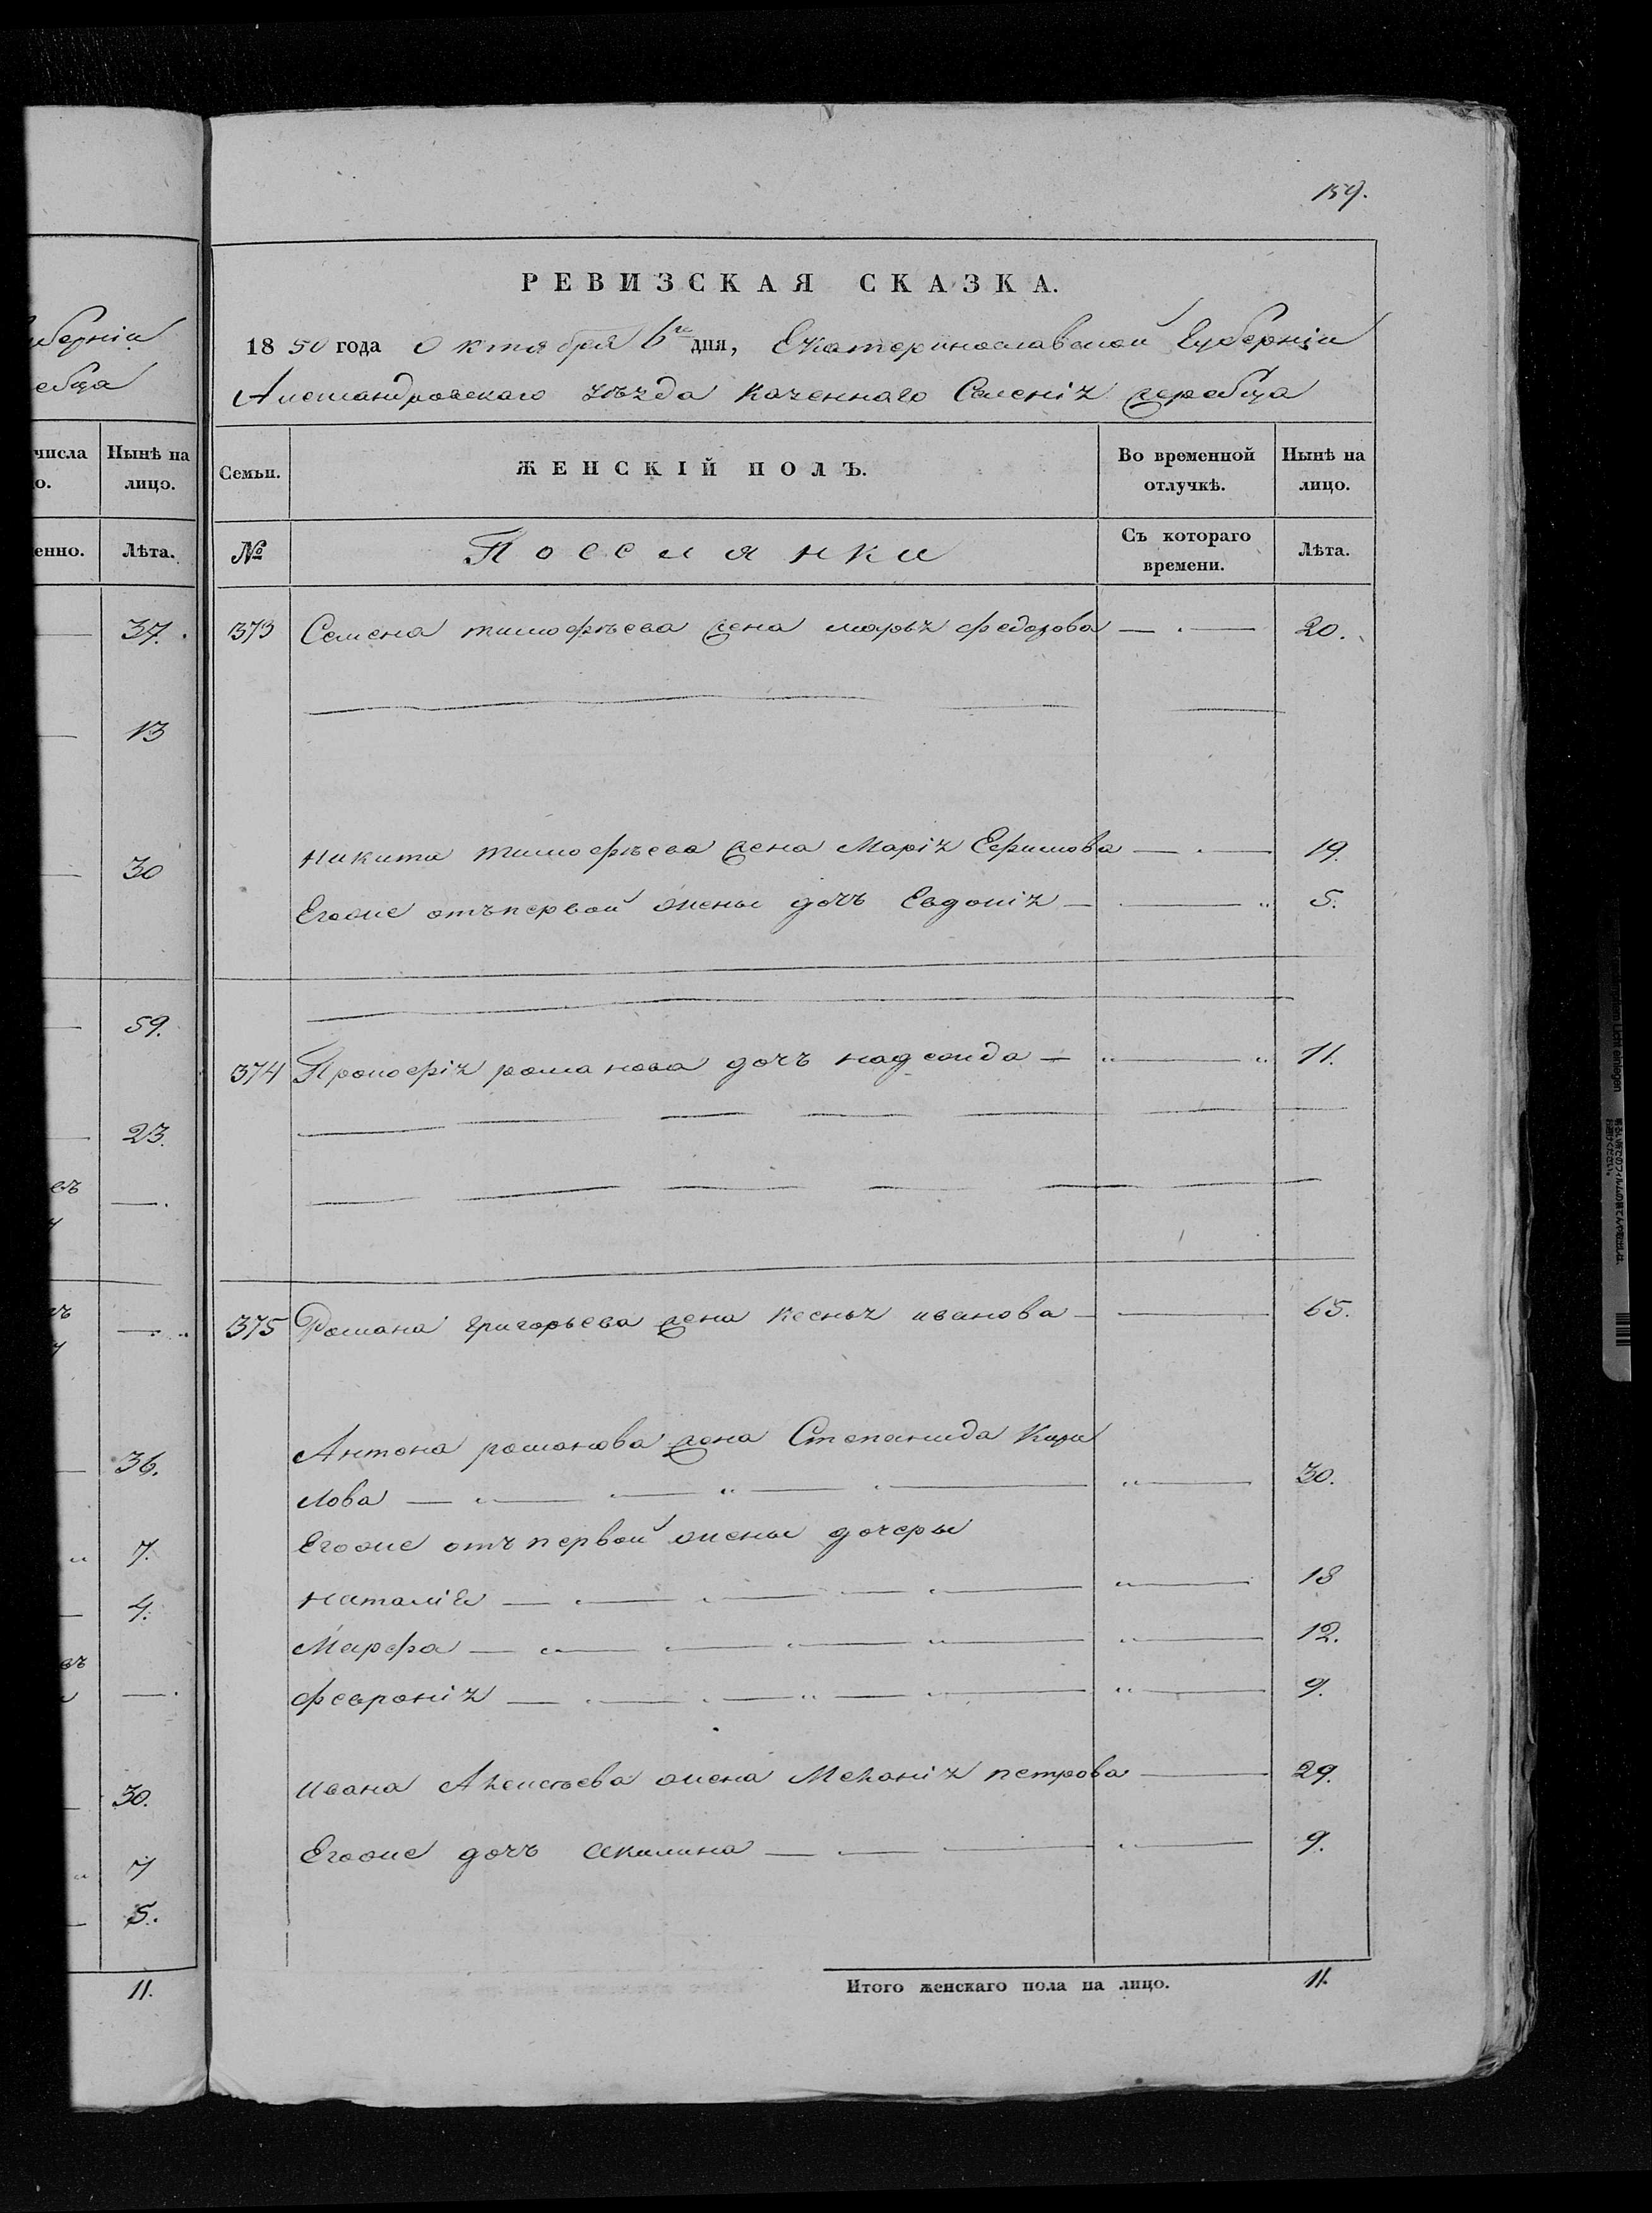 159.
уберніи
ебца
числа
о.
Нынѣ на
лицо.
енно.
Лѣта.
37.
13
30
59.
23.
36.
7.
4.
30.
7
5.
11.
РЕВИЗСКАЯ СКАЗКА.
1850 года Октября 6го дня, Екатеринославской Губерніи
Александровскаго уѣзда Казеннаго Селенія жеребца
Семьи.
ЖЕНСКІЙ ПОЛЪ.
Во временной
отлучкѣ.
Нынѣ на
лицо.
№
Поселянки
Съ котораго
времени.
Лѣта.
373 Семена тимофѣева жена марья федорова 20.
никита тимофѣева жена Марія Ефимова 19.
Егоже отъ первой жены дочь Евдокія 5.
374 Прокофія романова дочь надежда 11.
375 Романа григорьева жена ксенья иванова 65.
Антона романова жена Степанида Кири
лова 30.
Егоже отъ первой жены дочеры
наталія 18
Марфа 12.
февронія 9.
ивана Алексѣева жена Меланія петрова 29.
Егоже дочь акилина 9.
Итого женскаго пола на лицо. 11.